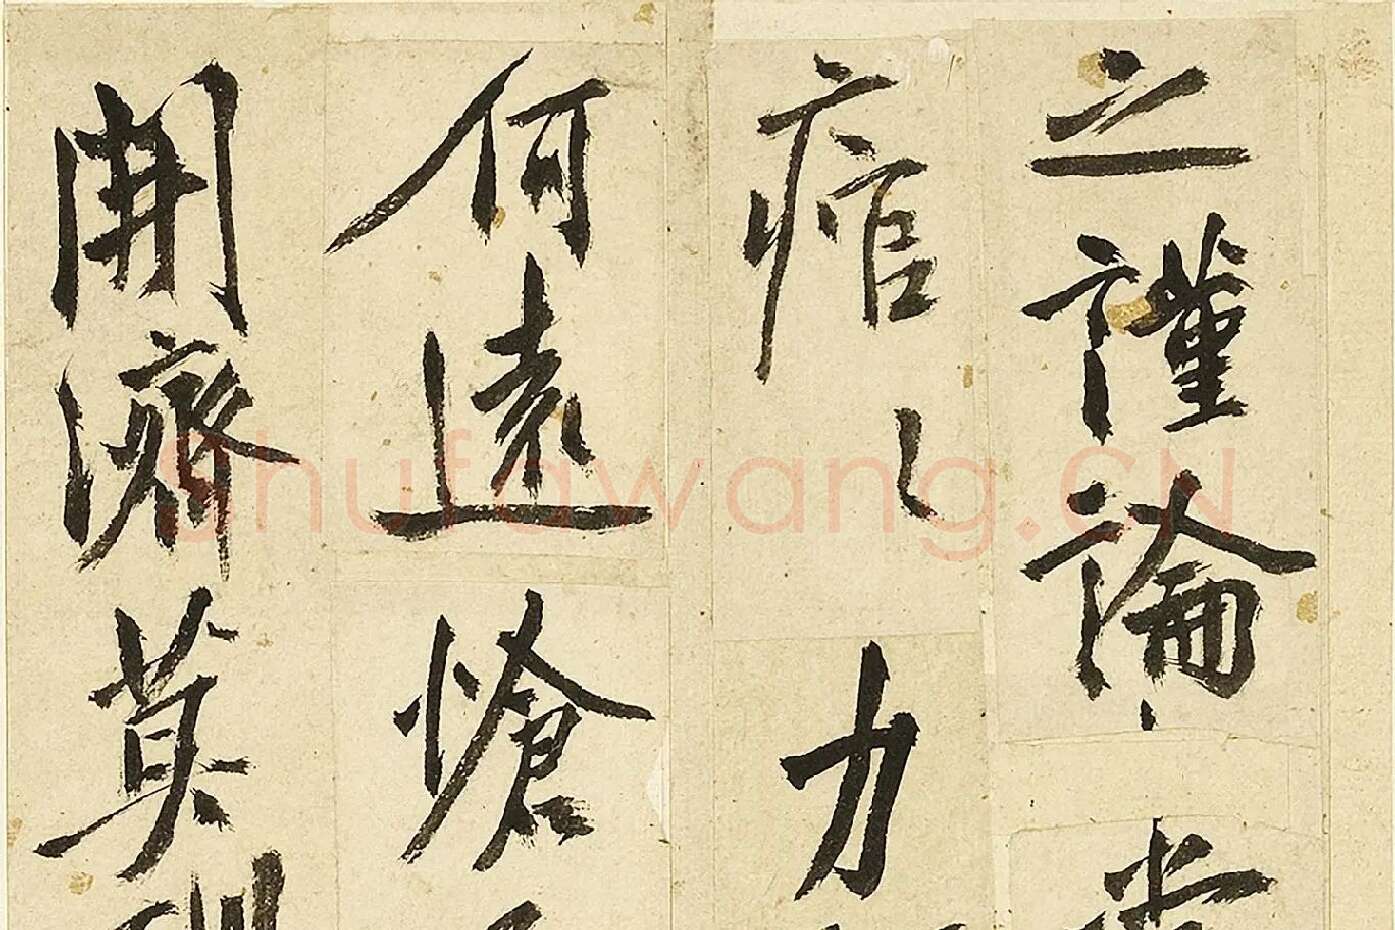 之謹論
痯〻力
何遠愴
開濟莫
Shufawang.CN